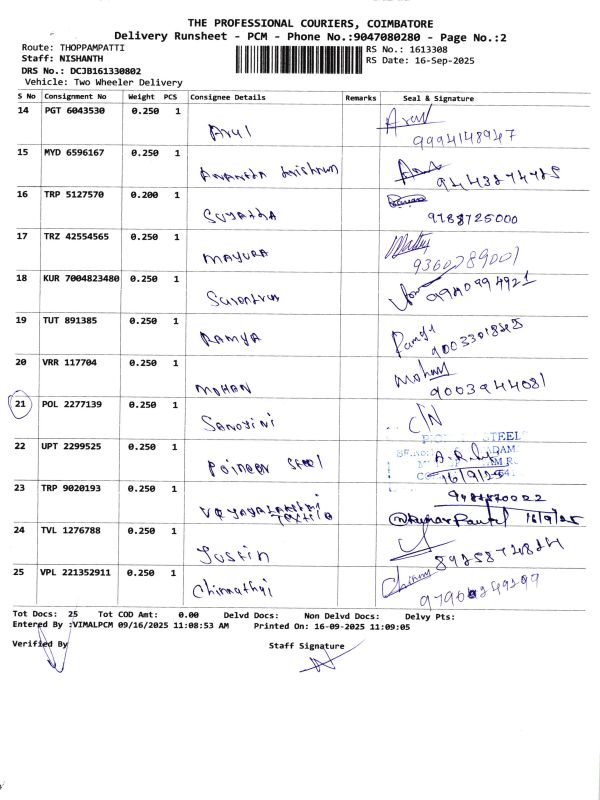 THE PROFESSIONAL COURIERS, COIMBATORE
Delivery Runsheet - PCM - Phone No.:9047080280 - Page No.:2
Route: THOPPAMPATTI
RS No.: 1613308
Staff: NISHANTH
RS Date: 16-Sep-2025
DRS No.: DCJB161330802
Vehicle: Two Wheeler Delivery
S No Consignment No Weight PCS Consignee Details Remarks Seal & Signature
14 PGT 6043530 0.250 1 Arul
9994148947
15 MYD 6596167 0.250 1
16 TRP 5127570 0.200 1 SUJATHA
9788725000
17 TRZ 42554565 0.250 1 MAYURA
9360289001
18 KUR 7004823480 0.250 1
9940994921
19 TUT 891385 0.250 1 RAMYA
20 VRR 117704 0.250 1 MOHAN Mohan
9003944081
21 POL 2277139 0.250 1 Sanoyini C/N
22 UPT 2299525 0.250 1 Poineer Steel
STEEL
16/9/25
23 TRP 9020193 0.250 1
16/9/25
24 TVL 1276788 0.250 1 Justin
25 VPL 221352911 0.250 1 Chinnathyi
Tot Docs: 25 Tot COD Amt: 0.00 Delvd Docs: Non Delvd Docs: Delvy Pts:
Entered By :VIMALPCM 09/16/2025 11:08:53 AM Printed On: 16-09-2025 11:09:05
Verified By Staff Signature